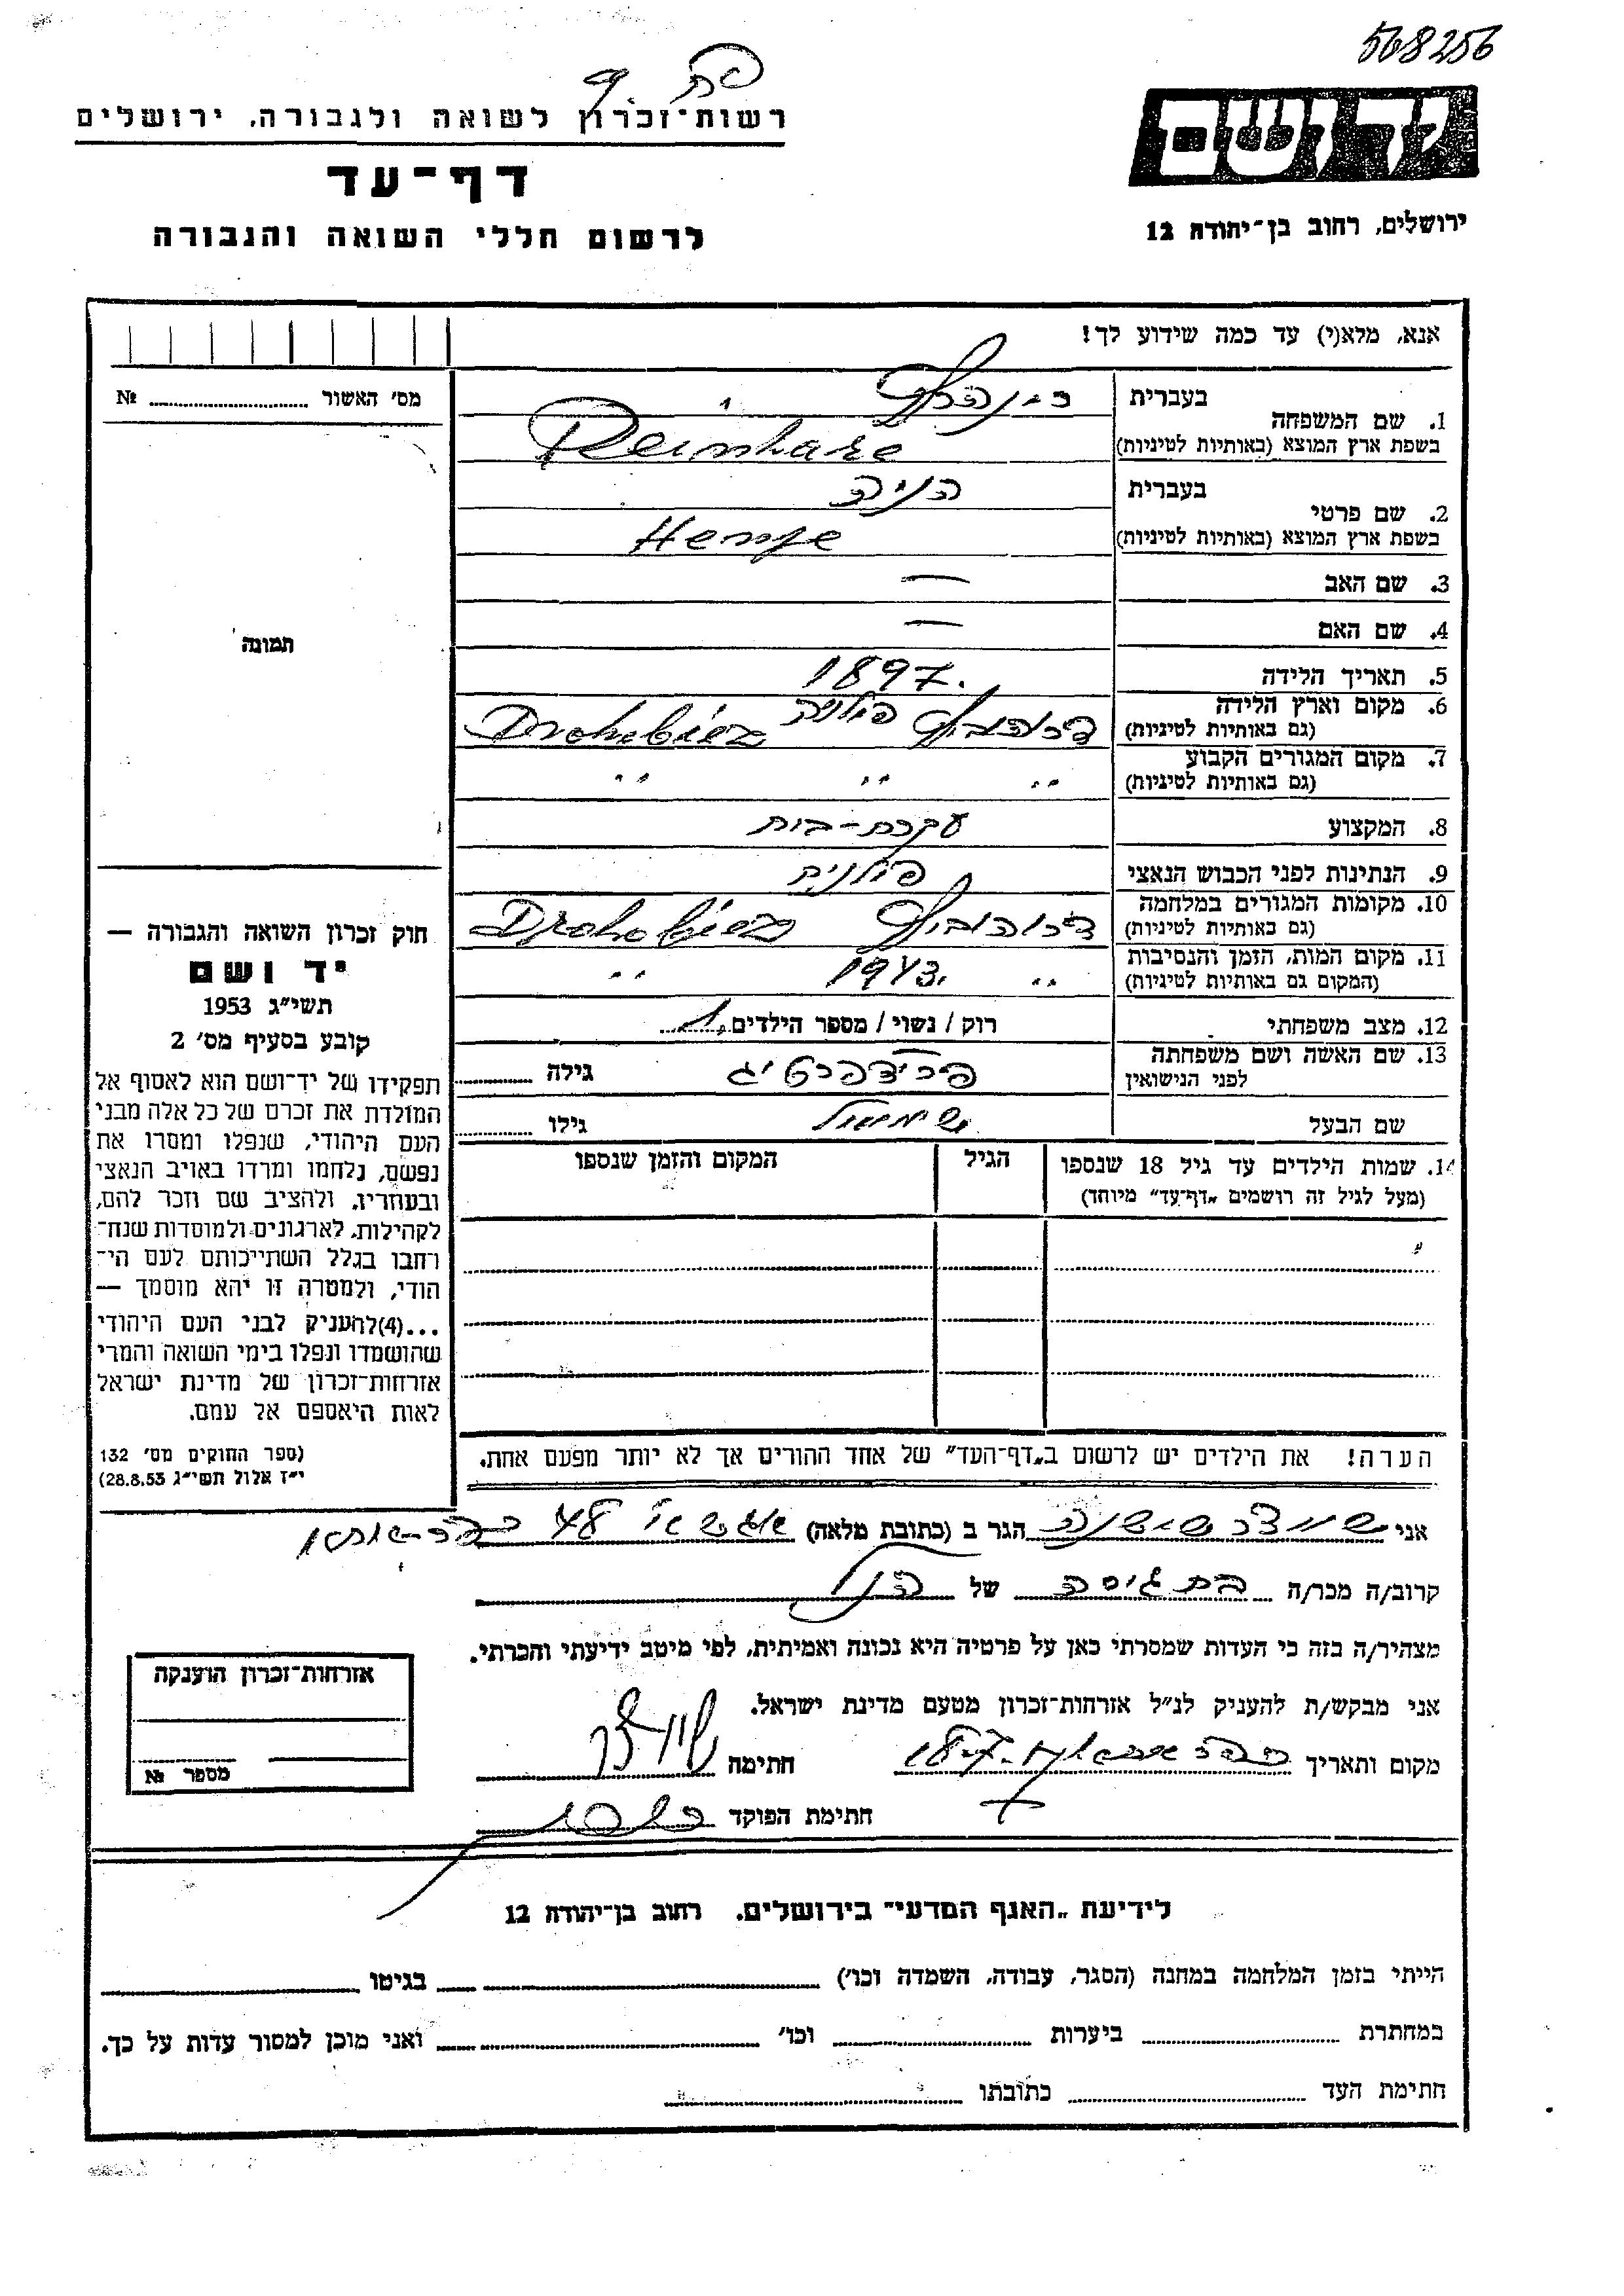 568256
ידושם
רשות־זכרון לשואה ולגבורה, ירושלים
דף־עד
לרשום חללי השואה והגבורה
ירושלים, רחוב בן־יהודה 12
אנא, מלא(י) עד כמה שידוע לך!
מס׳ האשור № 
תמונה
1. שם המשפחה
בעברית
בשפת ארץ המוצא (באותיות לטיניות)
2. שם פרטי
בעברית הניה
בשפת ארץ המוצא (באותיות לטיניות)
3. שם האב —
4. שם האם —
5. תאריך הלידה 1897.
6. מקום וארץ הלידה פולניה
(גם באותיות לטיניות)
7. מקום המגורים הקבוע ״ ״ ״
(גם באותיות לטיניות)
8. המקצוע עקרת-בית
9. הנתינות לפני הכבוש הנאצי פולנית
10. מקומות המגורים במלחמה
(גם באותיות לטיניות)
11. מקום המות, הזמן והנסיבות ״ 1943. ״
(המקום גם באותיות לטיניות)
12. מצב משפחתי רוק / נשוי / מספר הילדים 1
13. שם האשה ושם משפחתה
לפני הנישואין גילה
שם הבעל שמואל גילו
14. שמות הילדים עד גיל 18 שנספו הגיל המקום והזמן שנספו
(מעל לגיל זה רושמים „דף־עד״ מיוחד)
הערה! את הילדים יש לרשום ב„דף־העד״ של אחד ההורים אך לא יותר מפעם אחת.
חוק זכרון השואה והגבורה —
יד ושם
תשי״ג 1953
קובע בסעיף מס׳ 2
תפקידו של יד־ושם הוא לאסוף אל
המולדת את זכרם של כל אלה מבני
העם היהודי, שנפלו ומסרו את
נפשם, נלחמו ומרדו באויב הנאצי
ובעוזריו, ולהציב שם וזכר להם,
לקהילות, לארגונים ולמוסדות שנח־
רחבו בגלל השתייכותם לעם הי־
הודי, ולמטרה זו יהא מוסמך —
...(4)להעניק לבני העם היהודי
שהושמדו ונפלו בימי השואה והמרי
אזרחות־זכרון של מדינת ישראל
לאות היאספם אל עמם.
(ספר החוקים מס׳ 132
י״ז אלול תשי״ג 28.8.53)
אני שושנה הגר ב (כתובת מלאה)
קרוב/ה מכר/ה בת גיסה של הנ״ל
מצהיר/ה בזה כי העדות שמסרתי כאן על פרטיה היא נכונה ואמיתית, לפי מיטב ידיעתי והכרתי.
אני מבקש/ת להעניק לנ״ל אזרחות־זכרון מטעם מדינת ישראל.
מקום ותאריך חתימה
חתימת הפוקד
אזרחות־זכרון הוענקה
מספר №
לידיעת „האגף המדעי״ בירושלים, רחוב בן־יהודה 12
הייתי בזמן המלחמה במחנה (הסגר, עבודה, השמדה וכו׳) בגיטו
במחתרת ביערות וכו׳ ואני מוכן למסור עדות על כך.
חתימת העד כתובתו